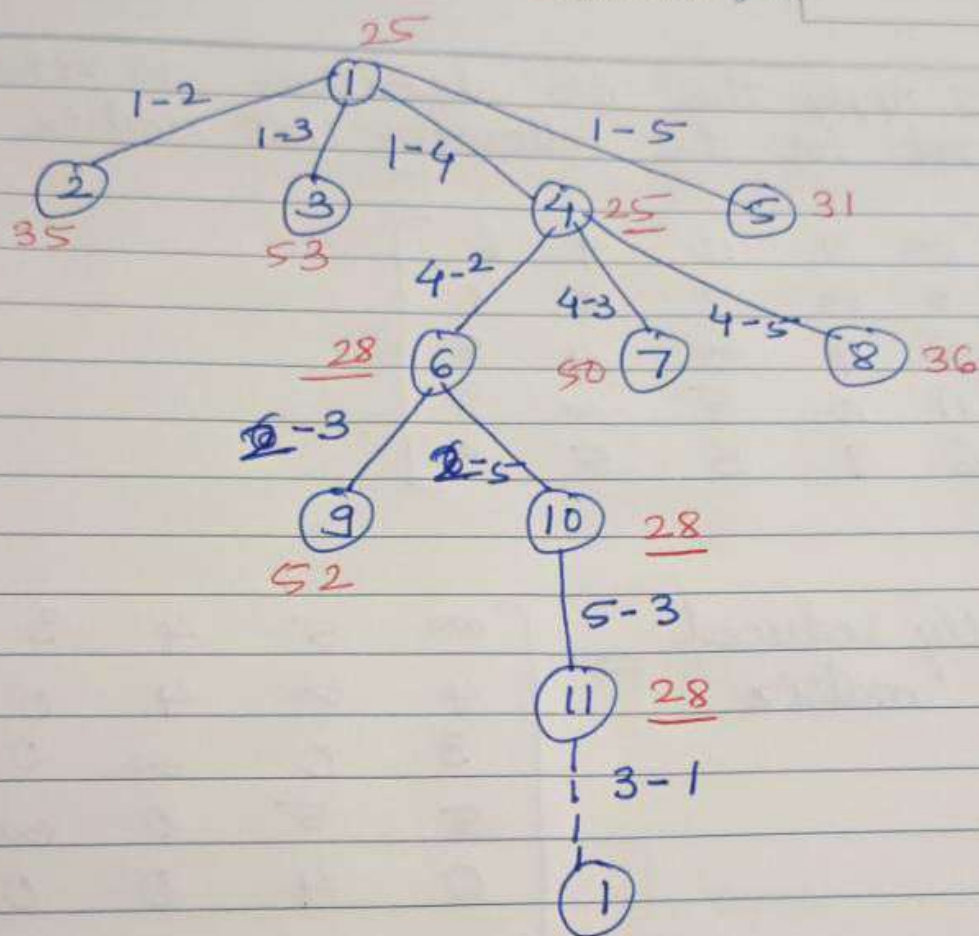 25
1
1-2 1-3 1-4 1-5
2 3 4 25 5 31
35 53
4-2 4-3 4-5
28 6 50 7 8 36
-3 2-5
9 10 28
52
5-3
11 28
3-1
1